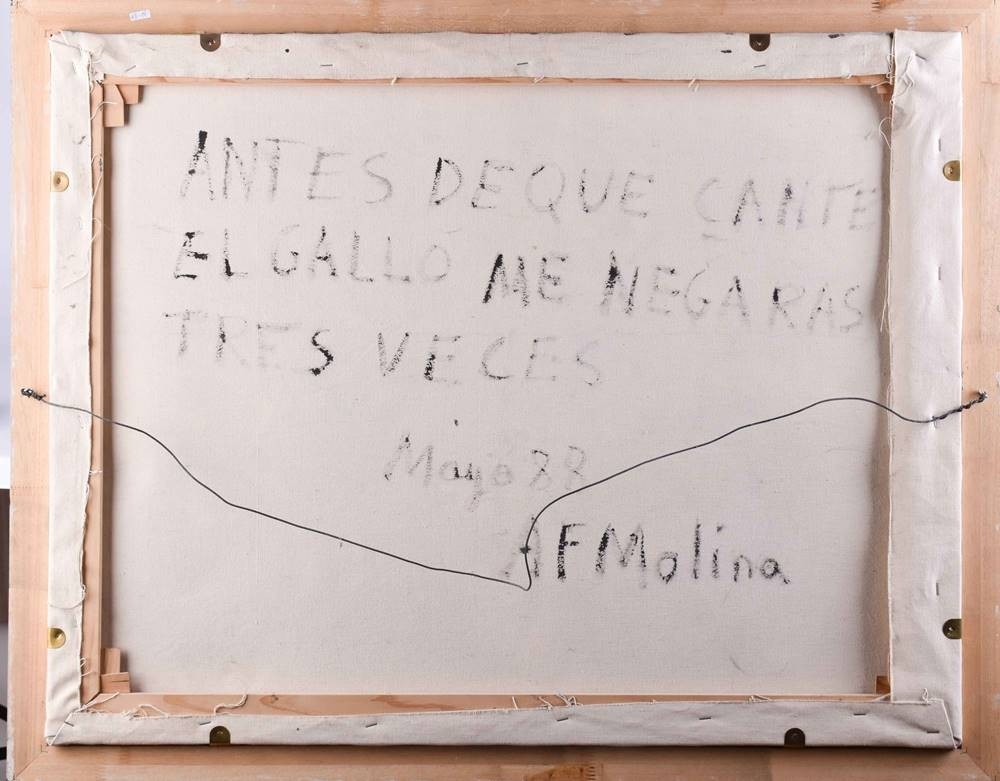 ANTES DE QUE CANTE
EL GALLO ME NEGARAS
TRES VECES
Mayo 88
AFMolina